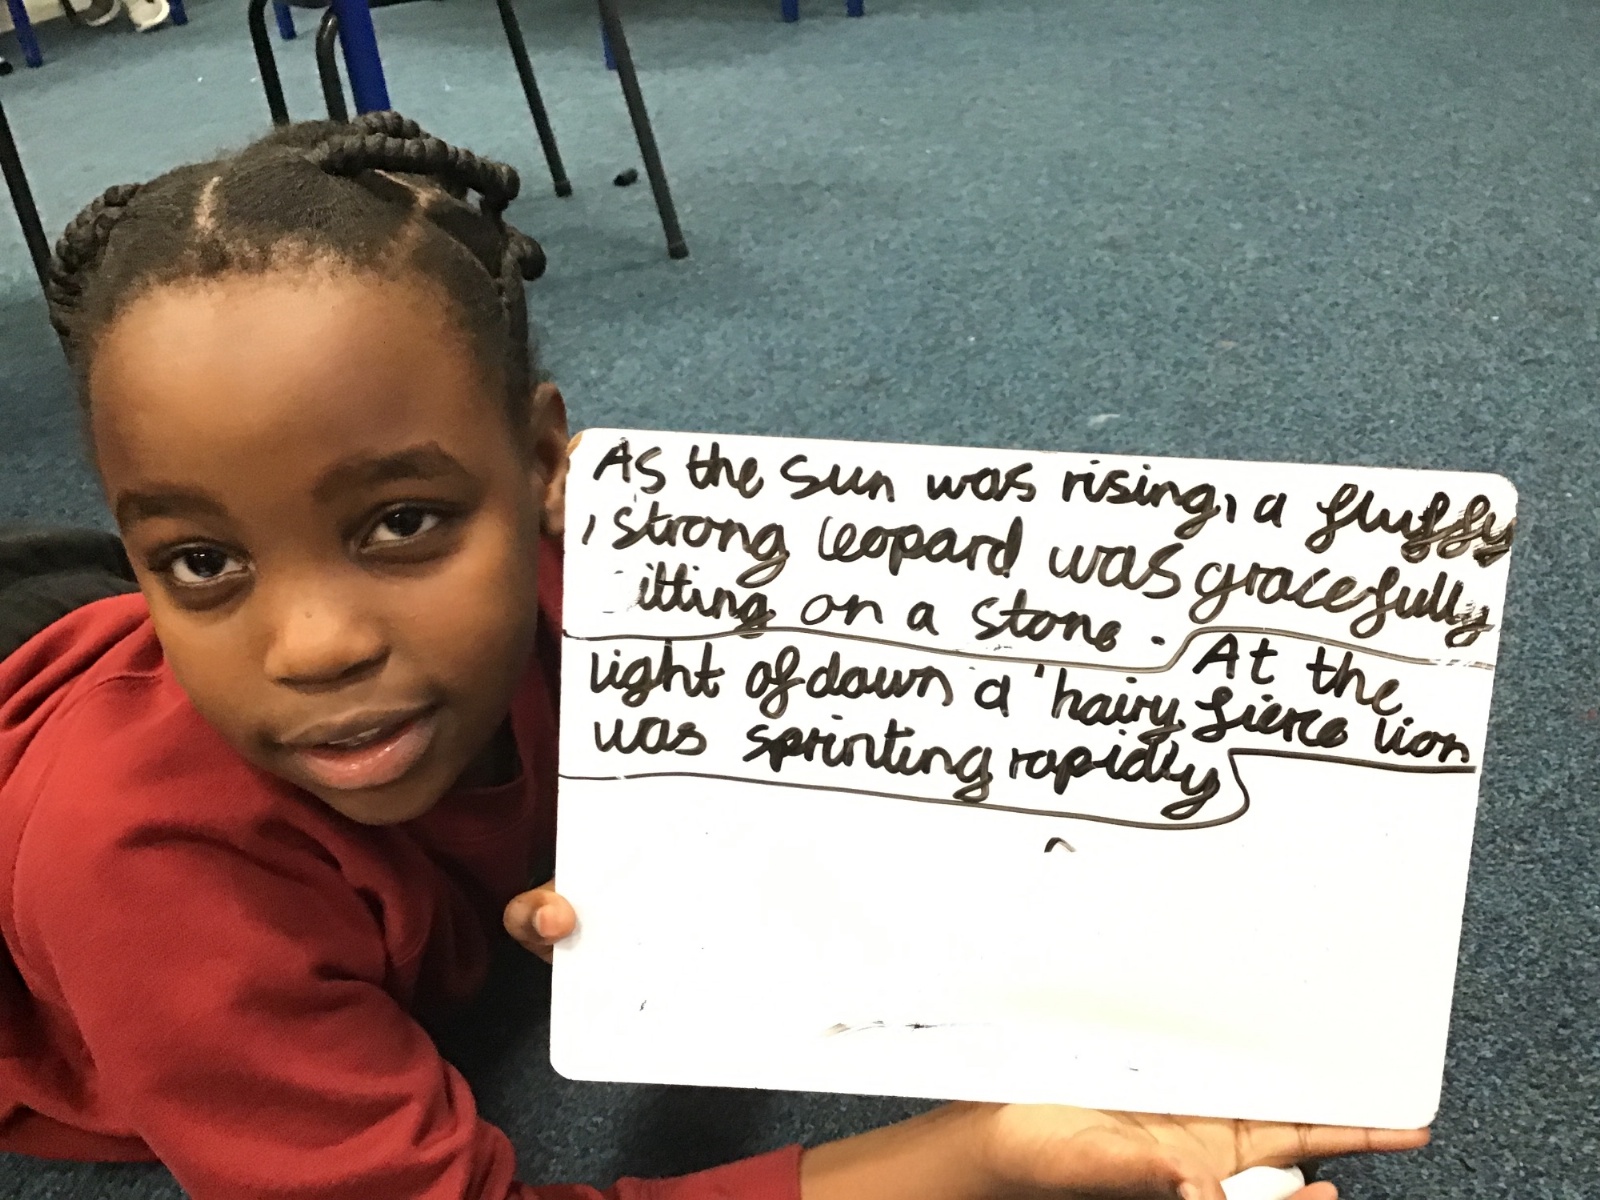 As the sun was rising, a fluffy
, strong leopard was gracefully
itting on a stone. At the
light of dawn a 'hairy, fierce lion
was sprinting rapidly